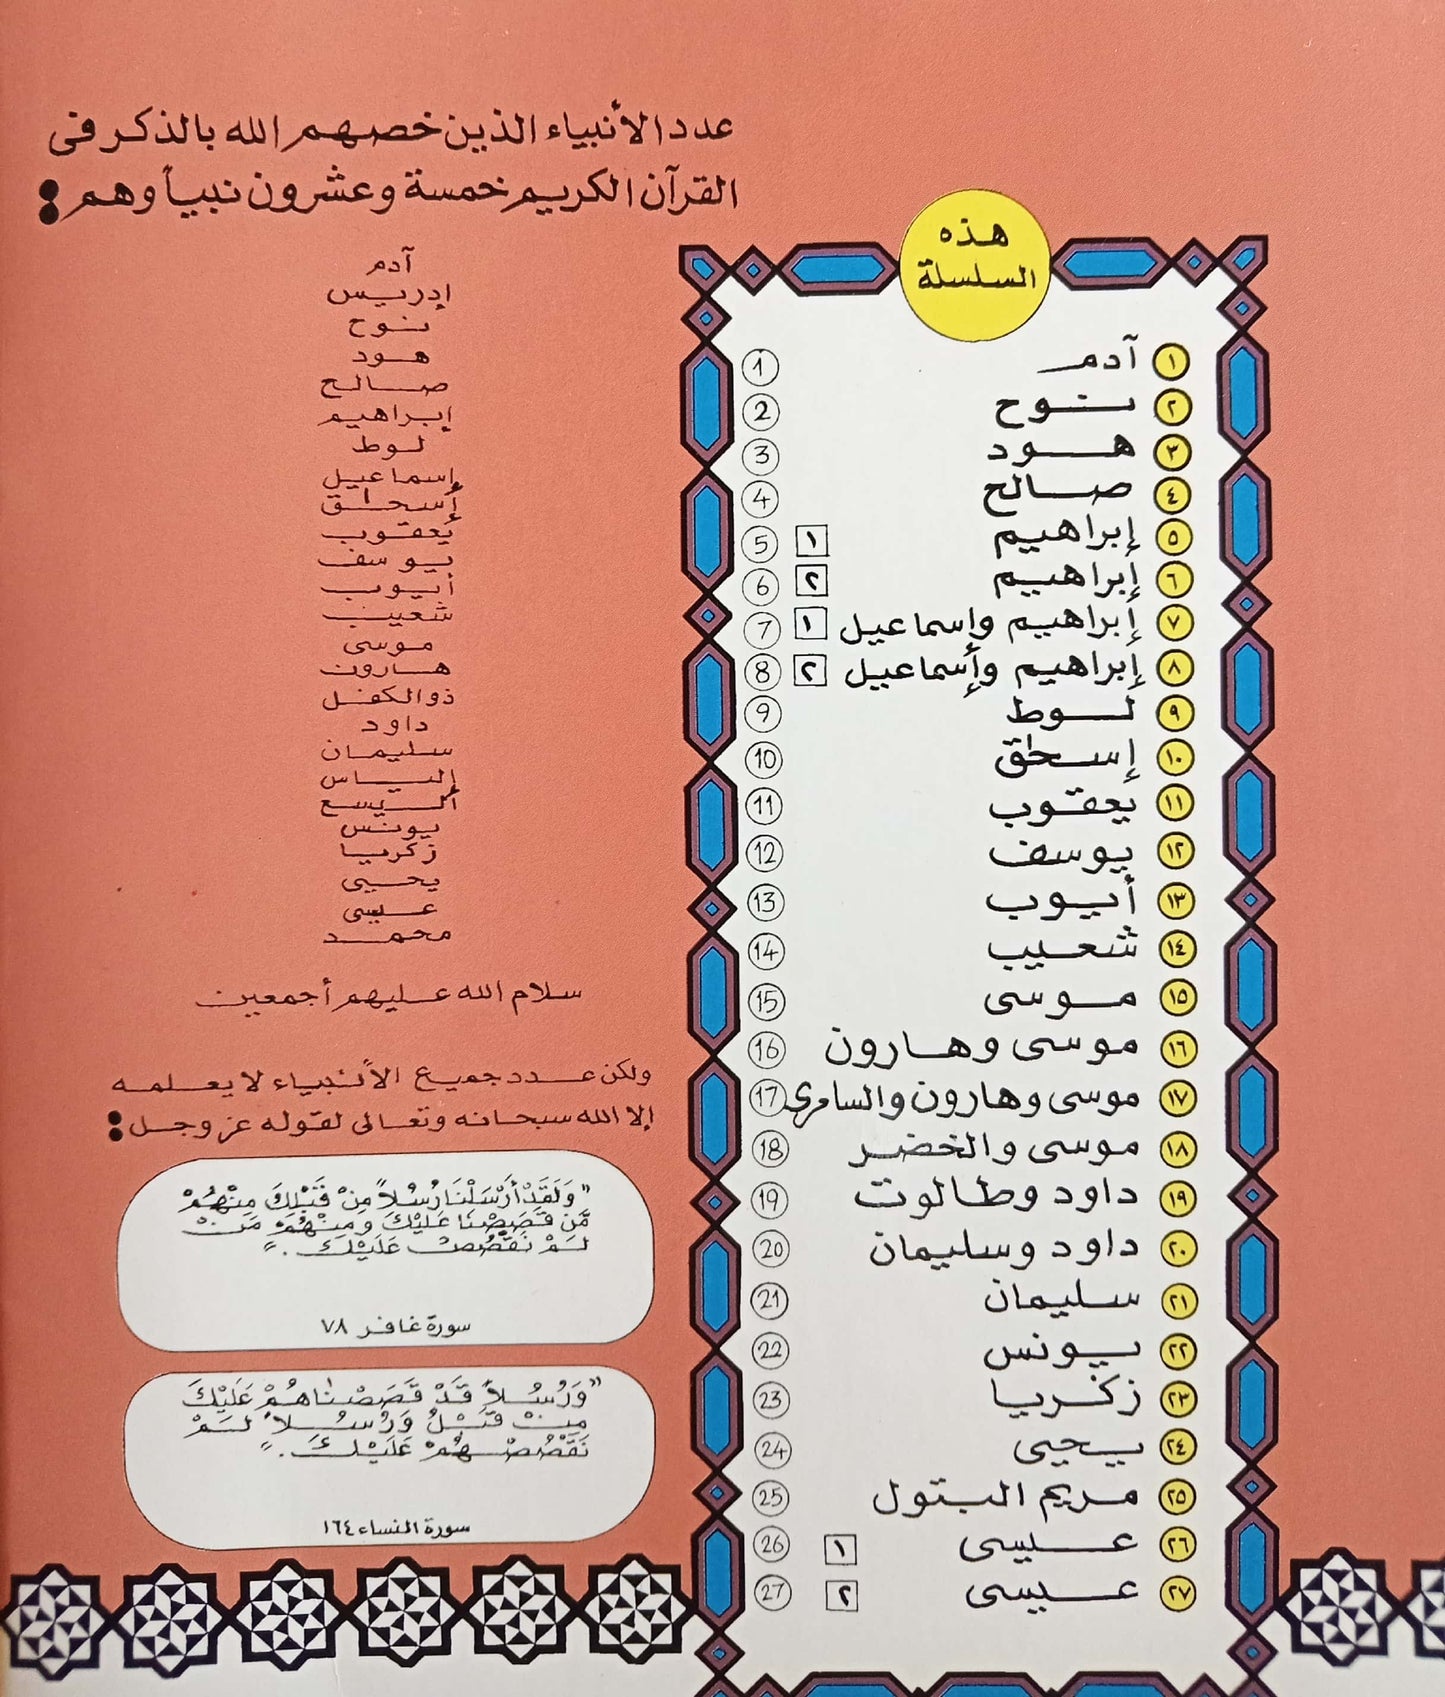 عدد الأنبياء الذين خصهم الله بالذكر فى
القرآن الكريم خمسة وعشرون نبياً وهم :
آدم
إدريس
نوح
هود
صالح
إبراهيم
لوط
إسماعيل
إسحاق
يعقوب
يوسف
أيوب
شعيب
موسى
هارون
ذو الكفل
داود
سليمان
إلياس
أليسع
يونس
زكريا
يحيى
عيسى
محمد
سلام الله عليهم أجمعين
ولكن عدد جميع الأنبياء لا يعلمه
إلا الله سبحانه وتعالى لقوله عز وجل :
"وَلَقَدْ أَرْسَلْنَا رُسُلاً مِنْ قَبْلِكَ مِنْهُمْ
مَّن قَصَصْنَا عَلَيْكَ وَمِنْهُمْ مَنْ
لَمْ نَقْصُصْ عَلَيْكَ ."
سورة غافر ٧٨
"وَرُسُلاً قَدْ قَصَصْنَاهُمْ عَلَيْكَ
مِنْ قَبْلُ وَرُسُلاً لَمْ
نَقْصُصْهُمْ عَلَيْكَ ."
سورة النساء ١٦٤
هذه
السلسلة
١ آدم 1
٢ نوح 2
٣ هود 3
٤ صالح 4
٥ إبراهيم ١ 5
٦ إبراهيم ٢ 6
٧ إبراهيم وإسماعيل ١ 7
٨ إبراهيم وإسماعيل ٢ 8
٩ لوط 9
١٠ إسحٰق 10
١١ يعقوب 11
١٢ يوسف 12
١٣ أيوب 13
١٤ شعيب 14
١٥ موسى 15
١٦ موسى وهارون 16
١٧ موسى وهارون والسامرى 17
١٨ موسى والخضر 18
١٩ داود وطالوت 19
٢٠ داود وسليمان 20
٢١ سليمان 21
٢٢ يونس 22
٢٣ زكريا 23
٢٤ يحيى 24
٢٥ مريم البتول 25
٢٦ عيسى ١ 26
٢٧ عيسى ٢ 27